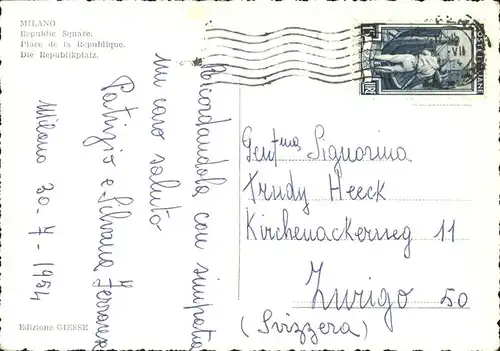 MILANO
Republic Square.
Place de la République.
Die Republikplatz.
Ricordandola con simpatia
un caro saluto
Patrizio e Silvana
Milano 20-7-1954
Gent.ma Signorina
Trudy Heeck
Kirchenackerweg 11
Zurigo 50
(Svizzera)
Edizione GIESSE